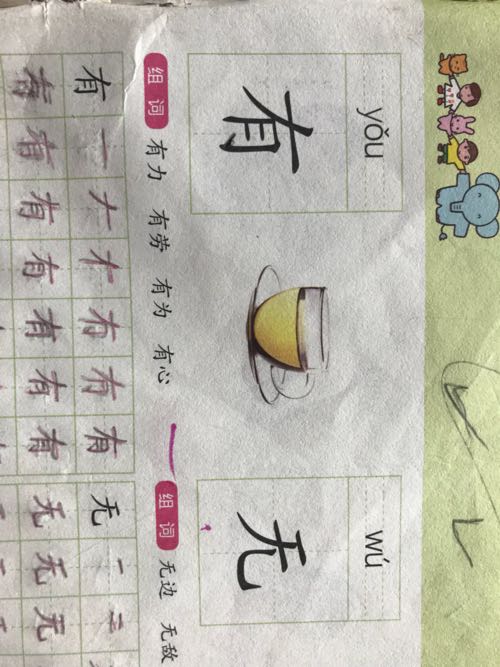 yǒu
有
组词 有力 有劳 有为 有心
有 一 ナ 冇 有 有
有 有 有 有 有 有 有
wú
无
组词 无边 无敌
无 一 二
无 无 无